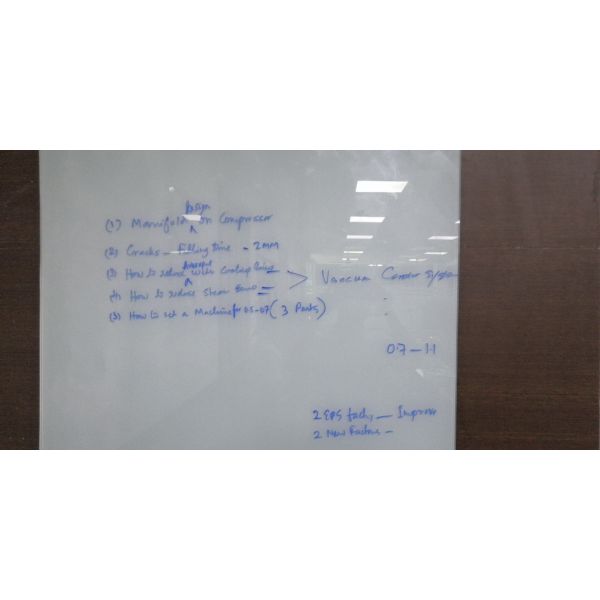 Design
(1) Manifold on Compressor
(2) Cracks - filling time - 2MM
(3) How to reduce water cooling time
(4) How to reduce steam time
Vaccum System
(5) How to set a Machine for 0.5-0.7 (3 Parts)
0.7 - 1.1
2 EPS factory - Improve
2 New Factory -